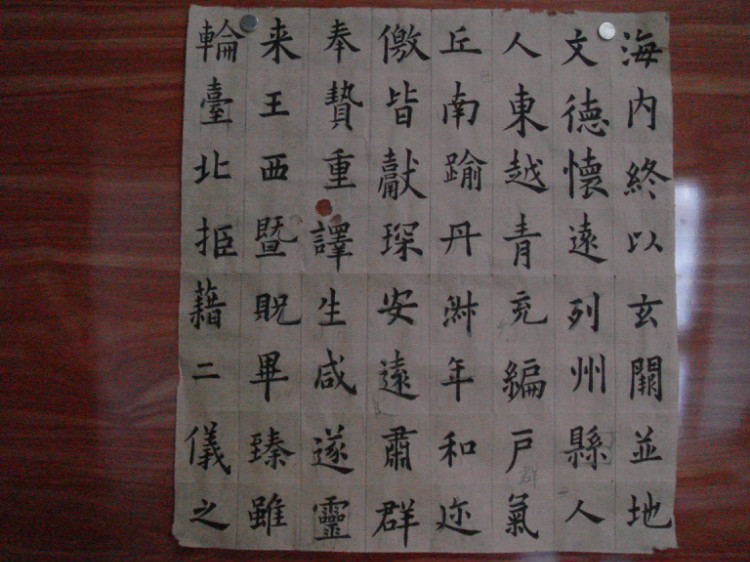 海內終以
文德懷遠
人東越青
丘南踰丹
儌皆獻琛
奉贄重譯
来王西暨
輪臺北拒
玄闕並地
列州縣人
充編戶氣
淑年和迩
安遠肅群
生咸遂靈
貺畢臻雖
藉二儀之